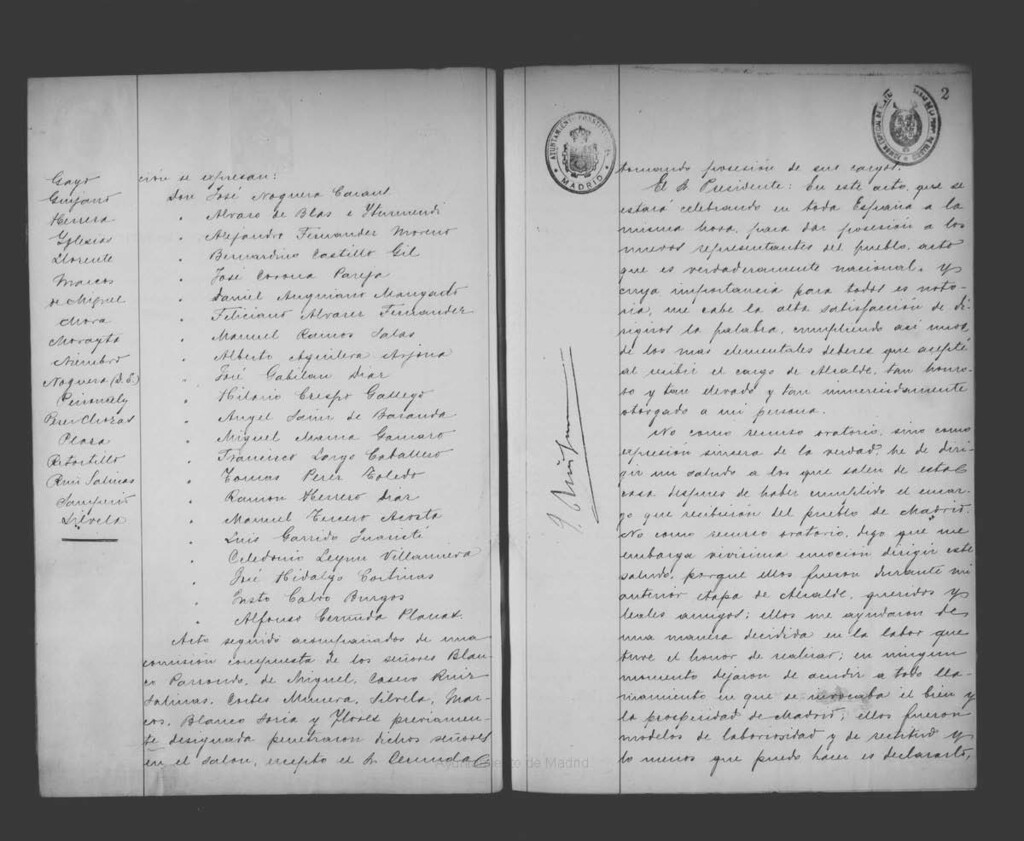 Gayo
Guijarro
Herrera
Yglesias
Llorente
Marcos
de Miguel
Mora
Morayta
Niembro
Noguera (D. E.)
Plaza
Retortillo
Ruiz Salinas
Samperio
Silvela
ción se expresan:
Don José Noguera
" Alvaro de Blas e Yturmendi
" Alejandro Fernandez Moreno
" Bernardino Castillo Gil
" José Corona Pareja
" Daniel Anguiano Mangado
" Feliciano Alvarez Fernandez
" Manuel Ramos Salas
" Alberto Aguilera Arjona
" José Gabilan Diaz
" Hilario Crespo Gallego
" Angel Sainz de Baranda
" Miguel Maura Gamazo
" Francisco Largo Caballero
" Tomas Perez Toledo
" Ramon Herrero Diaz
" Manuel Tercero Acosta
" Luis Garrido Juaristi
" Celedonio Leyun Villanueva
" José Hidalgo Cortinas
" Justo Calvo Burgos
" Alfonso Cerunda Planas.
Acto seguido acompañados de una
comisión compuesta de los señores Blan-
co Parrondo, de Miguel, Casero Ruiz
Salinas, Cortes Munera, Silvela, Mar-
cos, Blanco Soria y Flores previamen-
te designada penetraron dichos señores
en el salon, excepto el Sr. Cerunda
AYUNTAMIENTO CONSTITUCIONAL
MADRID
2
tomando posesión de sus cargos.
El Sr. Presidente: En este acto, que se
estará celebrando en toda España a la
misma hora, para dar posesión a los
nuevos representantes del pueblo, acto
que es verdaderamente nacional, y
cuya importancia para todos es noto-
ria, me cabe la alta satisfacción de di-
rigiros la palabra, cumpliendo así uno
de los mas elementales deberes que acepté
al recibir el cargo de Alcalde, tan honro-
so y tan elevado y tan inmerecidamente
otorgado a mi persona.
No como recurso oratorio, sino como
expresión sincera de la verdad, he de diri-
gir un saludo a los que salen de esta
casa despues de haber cumplido el encar-
go que recibieron del pueblo de Madrid.
No como recurso oratorio, digo que me
embarga vivisima emoción dirigir este
saludo, porque ellos fueron durante mi
anterior etapa de Alcalde, queridos y
leales amigos; ellos me ayudaron de
una manera decidida en la labor que
tuve el honor de realizar; en ningun
momento dejaron de acudir a todo lla-
mamiento en que se invocaba el bien y
la prosperidad de Madrid; ellos fueron
modelos de laboriosidad y de rectitud y
lo menos que puedo hacer es declararlo,
Ayuntamiento de Madrid